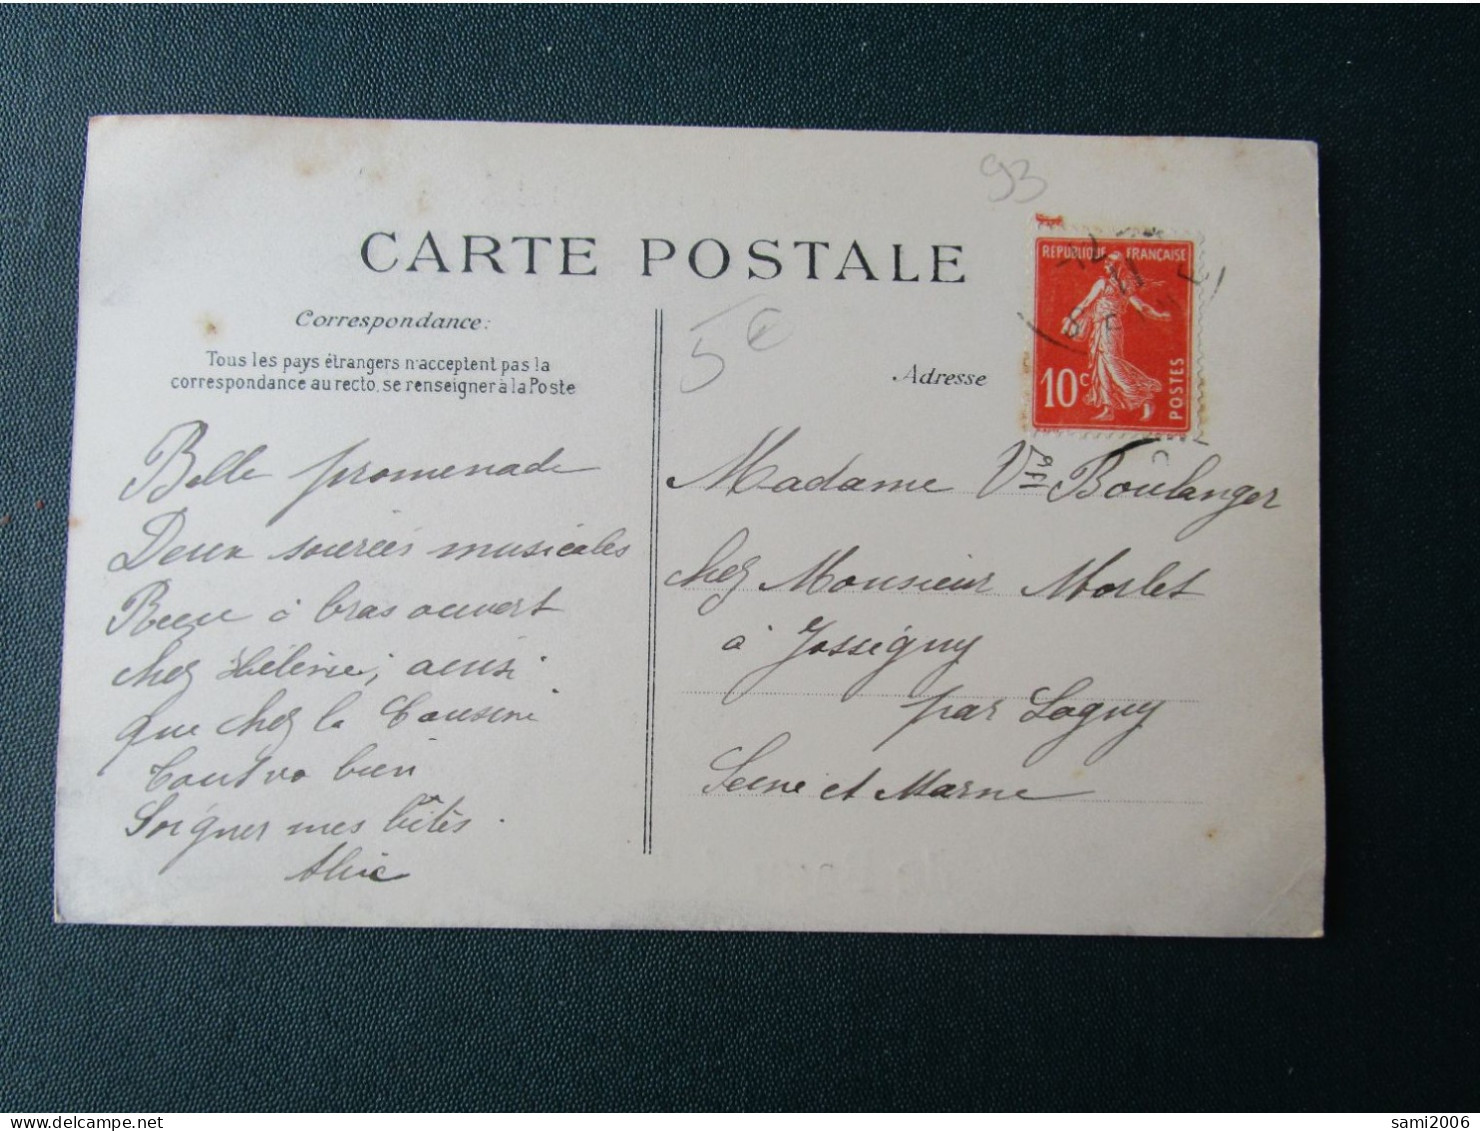 93
CARTE POSTALE
REPUBLIQUE FRANÇAISE
10c
POSTES
Correspondance:
Tous les pays étrangers n'acceptent pas la
correspondance au recto, se renseigner à la Poste
5€
Adresse
Belle promenade
Deux soirées musicales
Recue à bras ouvert
chez Hélène, ainsi
que chez la Cousine
tout va bien
Soigner mes bêtes.
Alice
Madame Vve Boulanger
chez Monsieur Morlet
à Jossigny
par Lagny
Seine et Marne
sami2006